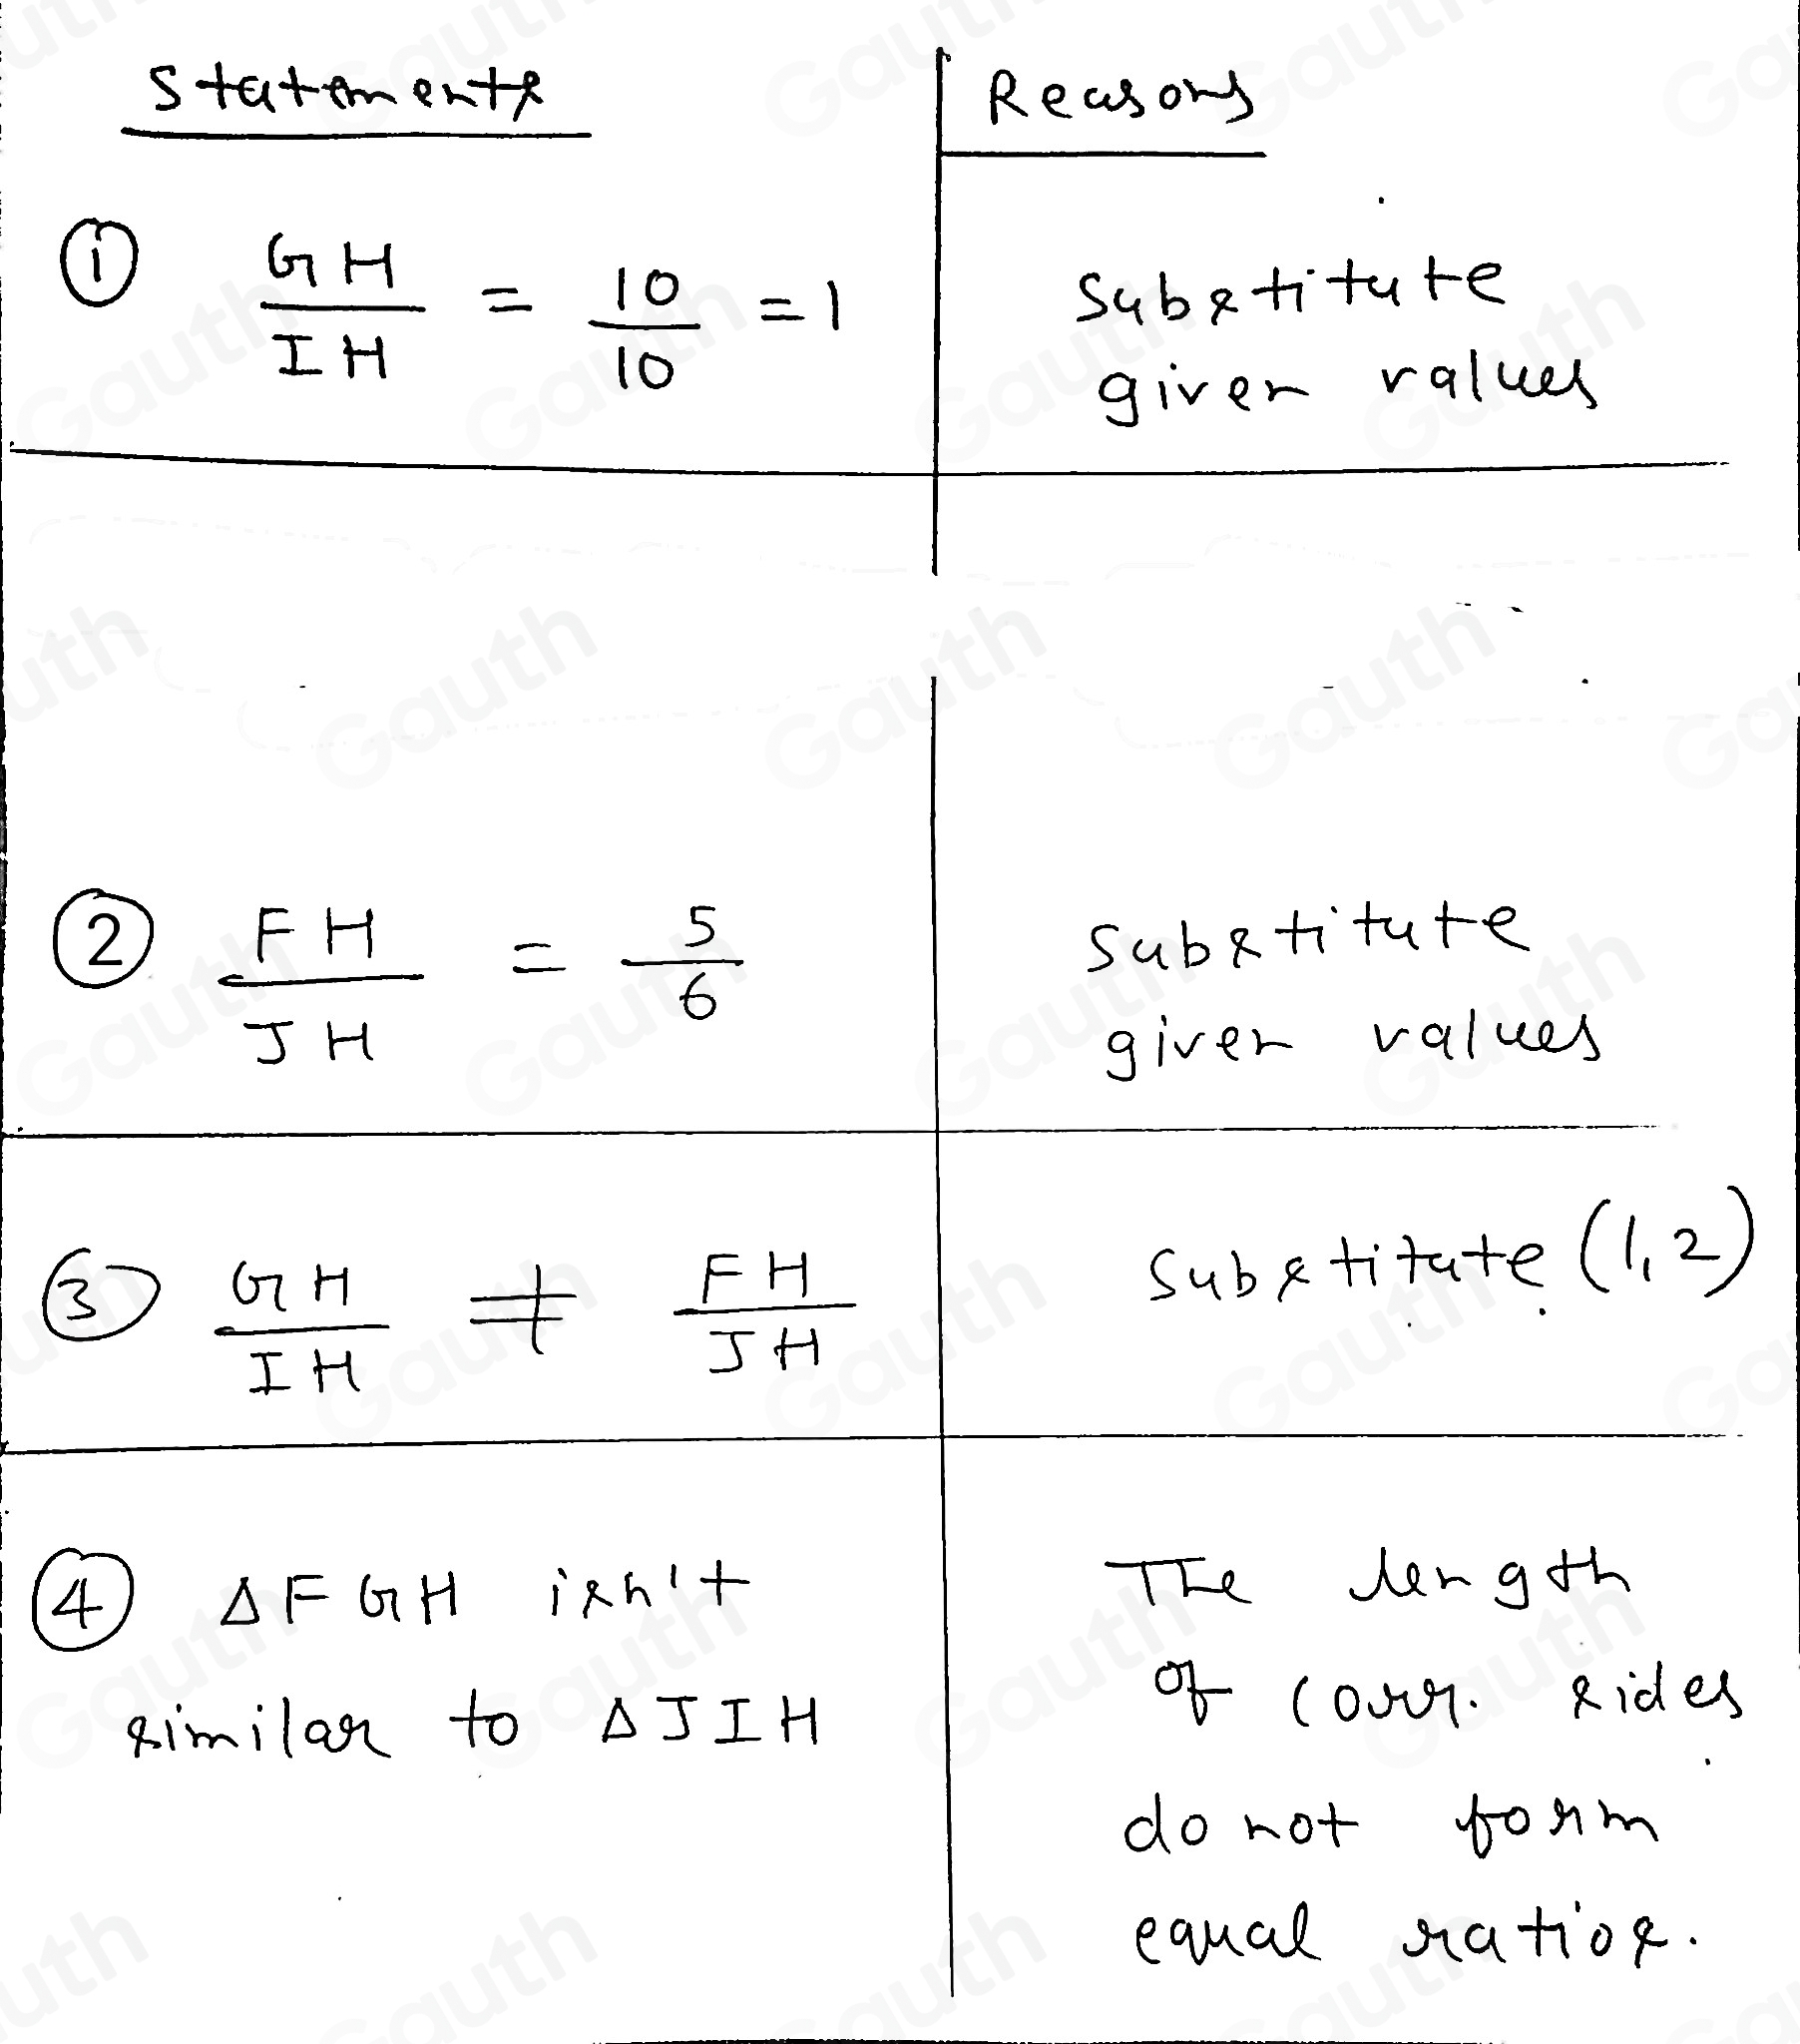 Statements | Reasons
① GH/IH = 10/10 = 1 | Substitute given values
② FH/JH = 5/6 | Substitute given values
③ GH/IH ≠ FH/JH | Substitute (1,2)
④ ΔFGH isn't similar to ΔJIH | The length of corr. sides do not form equal ratios.
Gauth